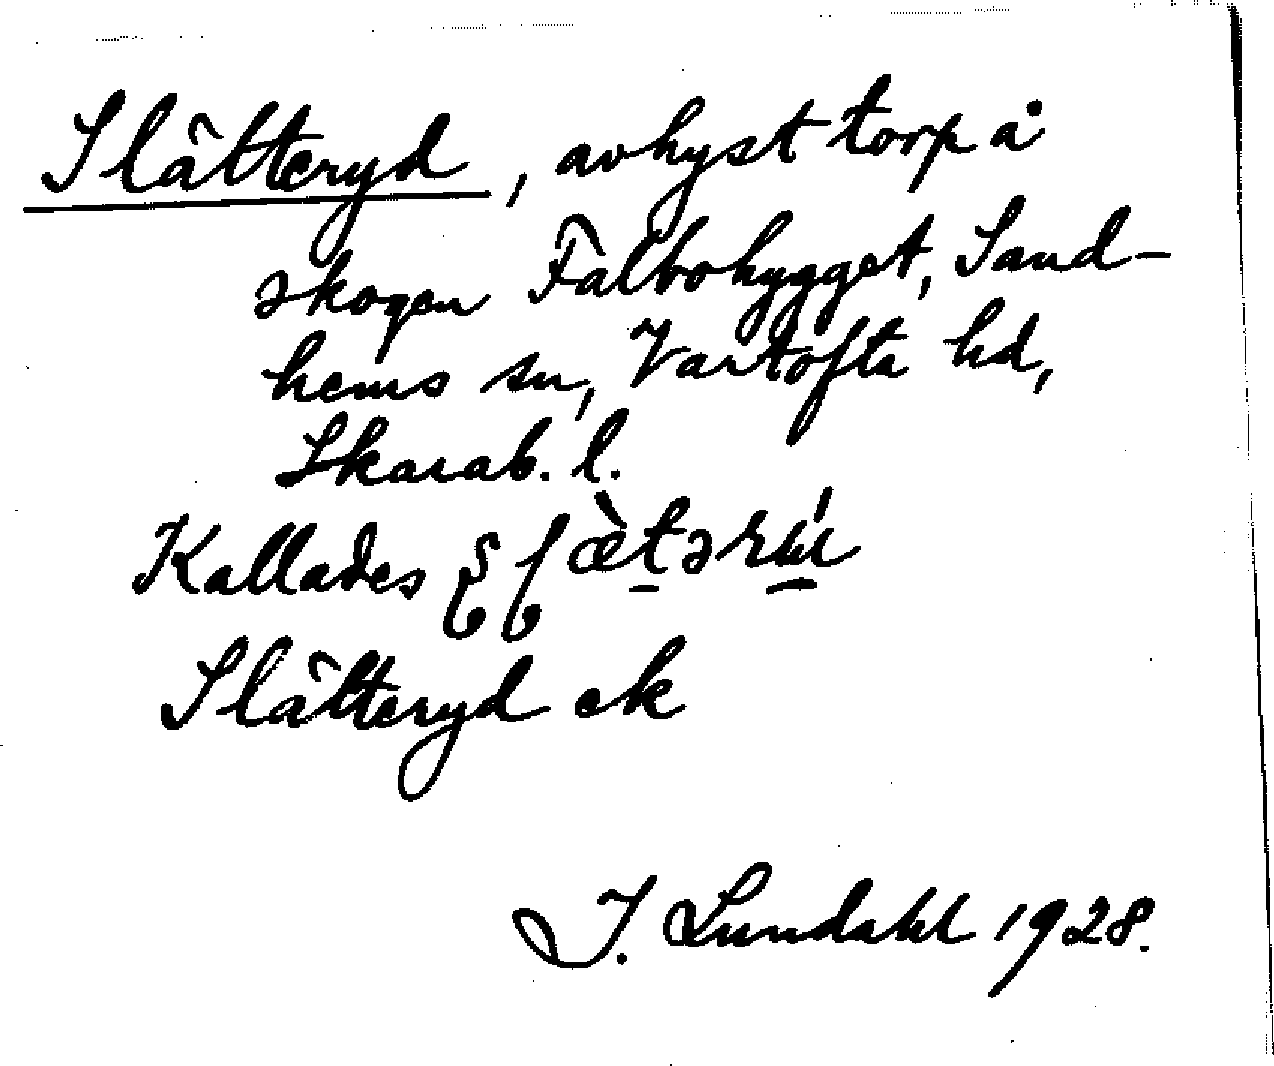 Slätteryd, avhyst torp å
skogen Falbohygget, Sand-
hems sn, Vartofta hd,
Skarab. l.
Kallades
Slätteryd ek
I. Lundahl 1928.